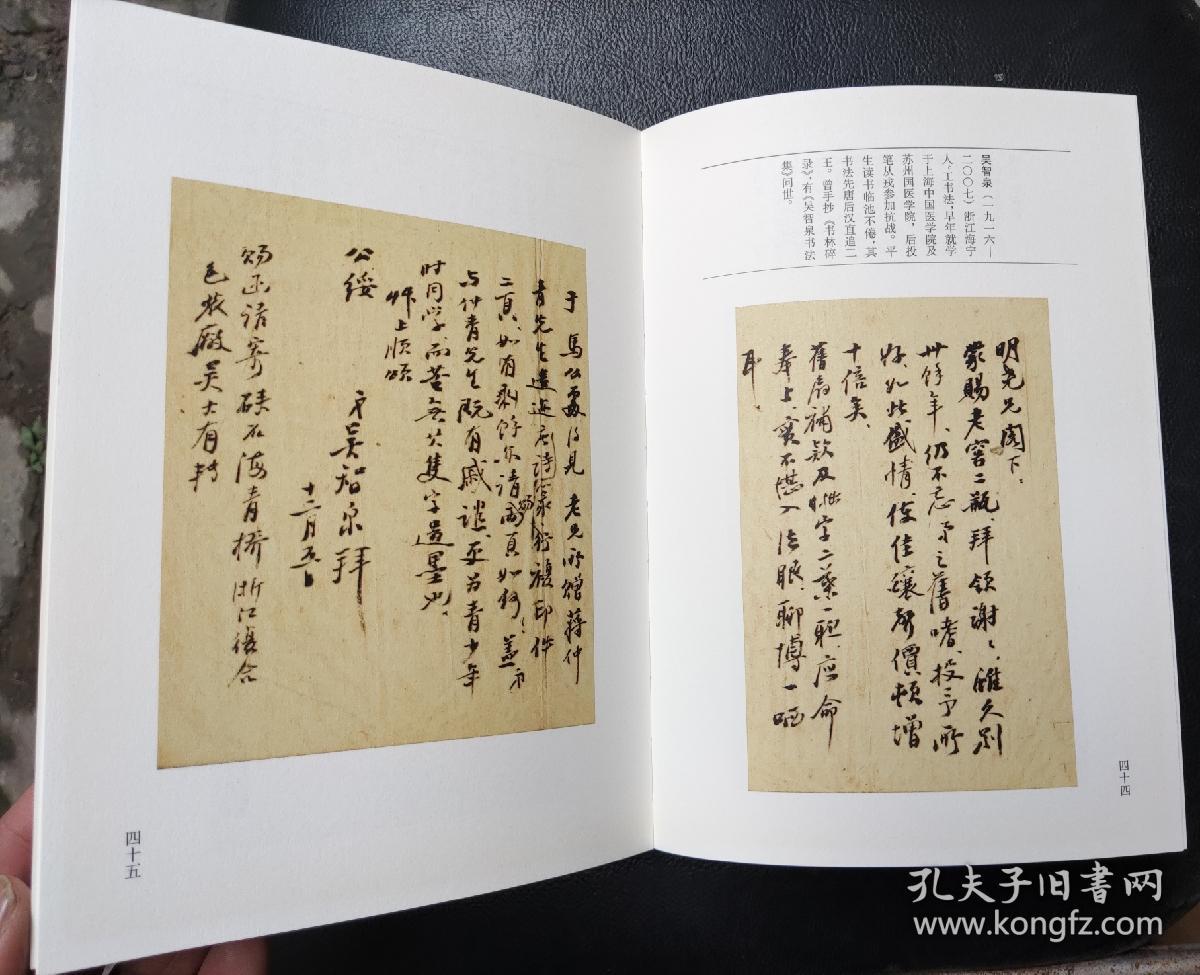 吴智泉(一九一六—
二〇〇七)浙江海宁
人。工书法,早年就学
于上海中国医学院及
苏州国医学院,后投
笔从戎参加抗战。平
生读书临池不倦,其
书法先唐后汉直追二
王。曾手抄《书林碎
录》,有《吴智泉书法
集》问世。
明尧兄阁下:
蒙赐老窖二瓶、拜领谢〻、虽久别
卅馀年、仍不忘弟之旧嗜、投予所
好、如此盛情、使佳酿声价顿增
十倍矣、
旧扇补款及 字二叶、一听应命
奉上、实不堪入法眼、聊博一哂
耳
四十四
于 馬公處得見 老兄所贈蔣仲
青先生遺 詩 複印件
二頁、如有剩餘 請 頁如何、蓋弟
与仲青先生既有戚誼、更为青少年
时同学、而苦无其隻字遺墨也、
耑上順頌
公绥
弟吴智泉拜
十二月五日
赐函请寄硖石海青桥浙江復合
包装厰吴士有转
四十五
孔夫子旧书网
www.kongfz.com